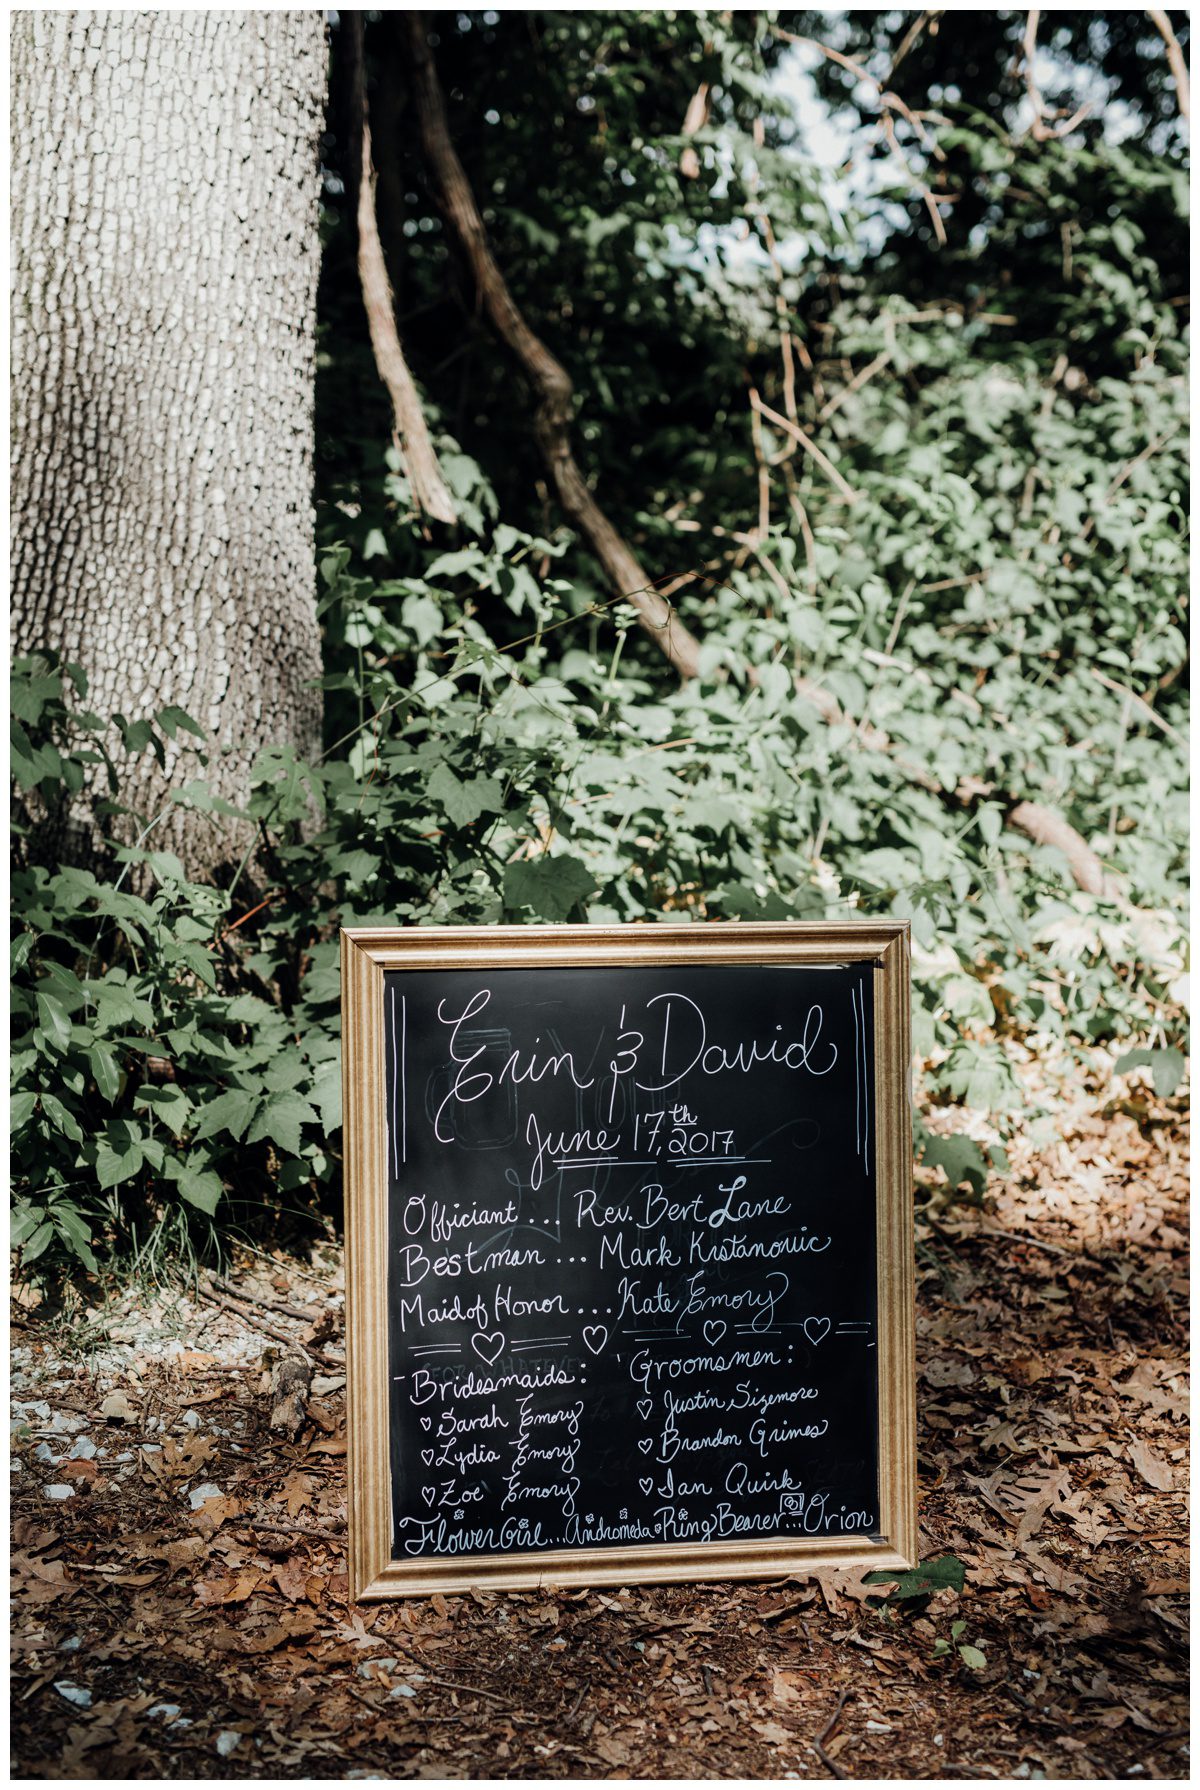 Erin & David
June 17,th 2017
Officiant ... Rev. Bert Lane
Best man ... Mark Kistanovic
Maid of Honor ... Kate Emory
Bridesmaids:
♡ Sarah Emory
♡ Lydia Emory
♡ Zoe Emory
Groomsmen:
♡ Justin Sizemore
♡ Brandon Grimes
♡ Ian Quirk
Flower Girl... Andromeda Ring Bearer... Orion